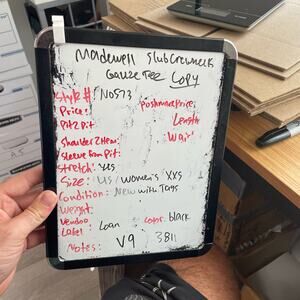 Madewell Slub Crewneck
Gauze Tee Copy
Style #: N0573
Price: Poshmark Price:
Pit 2 Pit Length
Waist
Shoulder 2 Hem:
Sleeve from Pit:
Stretch: yes
Size: US/ Women's XXS
Condition: New with Tags
Weight:
Vendoo
Label: Loan color: black
Notes: V9 3811